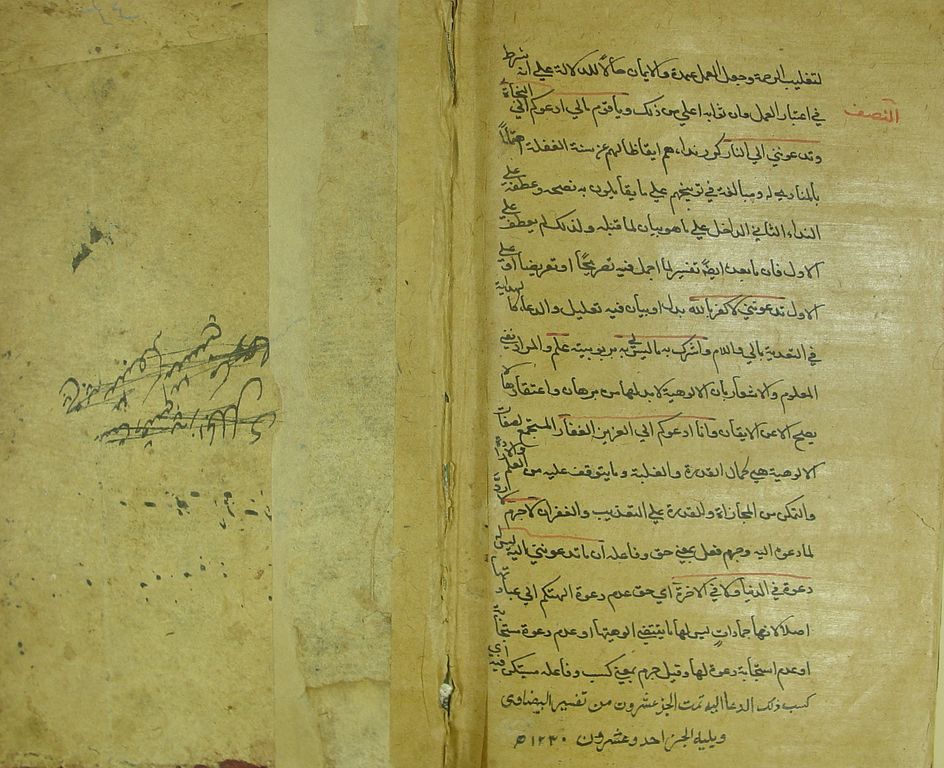 لتغليب الرحمة وجعل العمل عمدة والايمان حالا للدلالة علي انه شرط
في اعتبار العمل وان ثوابه اعلي من ذلك ويا قوم مالي ادعوكم الي النجاة
المنصف
وتدعونني الي النار كرر نداءهم ايقاظا لهم عن سنة الغفلة اهتماما
بالمنادي له ومبالغة في توبيخهم علي ما يقابلون به نصحه وعطفه علي
النداء الثاني الداخل علي ما هو بيان لما قبله ولذلك لم يعطف علي
الاول فان ما بعده ايضا تفسير لما اجمل فيه تصريحا او تعريضا او علي
الاول تدعونني لاكفر بالله بدل او بيان فيه تعليل والدعاء كالهداية
في التعدية بالي واللام واشرك به ما ليس لي به بربوبيته علم والمراد نفي
المعلوم والاشعار بان الالوهية لا بد لها من برهان واعتقادها لا
يصح الا عن ايقان وانا ادعوكم الي العزيز الغفار المستجمع لصفات
الالوهية من كمال القدرة والغلبة وما يتوقف عليه من العلم والارادة
والتمكن من المجازاة والقدرة علي التعذيب والغفران لا جرم لا رد
لما دعوه اليه وجرم فعل بمعني حق وفاعله ان ما تدعونني اليه ليس له
دعوة في الدنيا ولا في الاخرة اي حق عدم دعوة الهتكم الي عبادتها
اصلا لانها جمادات ليس لها ما يقتضي الوهيتها او عدم دعوة مستجابة
او عدم استجابة دعوة لها وقيل جرم بمعني كسب وفاعله مستكن فيه اي
كسب ذلك الدعا اليه تمت الجز عشرون من تفسير البيضاوي
ويليه الجز احد وعشرون ١٢٣٠